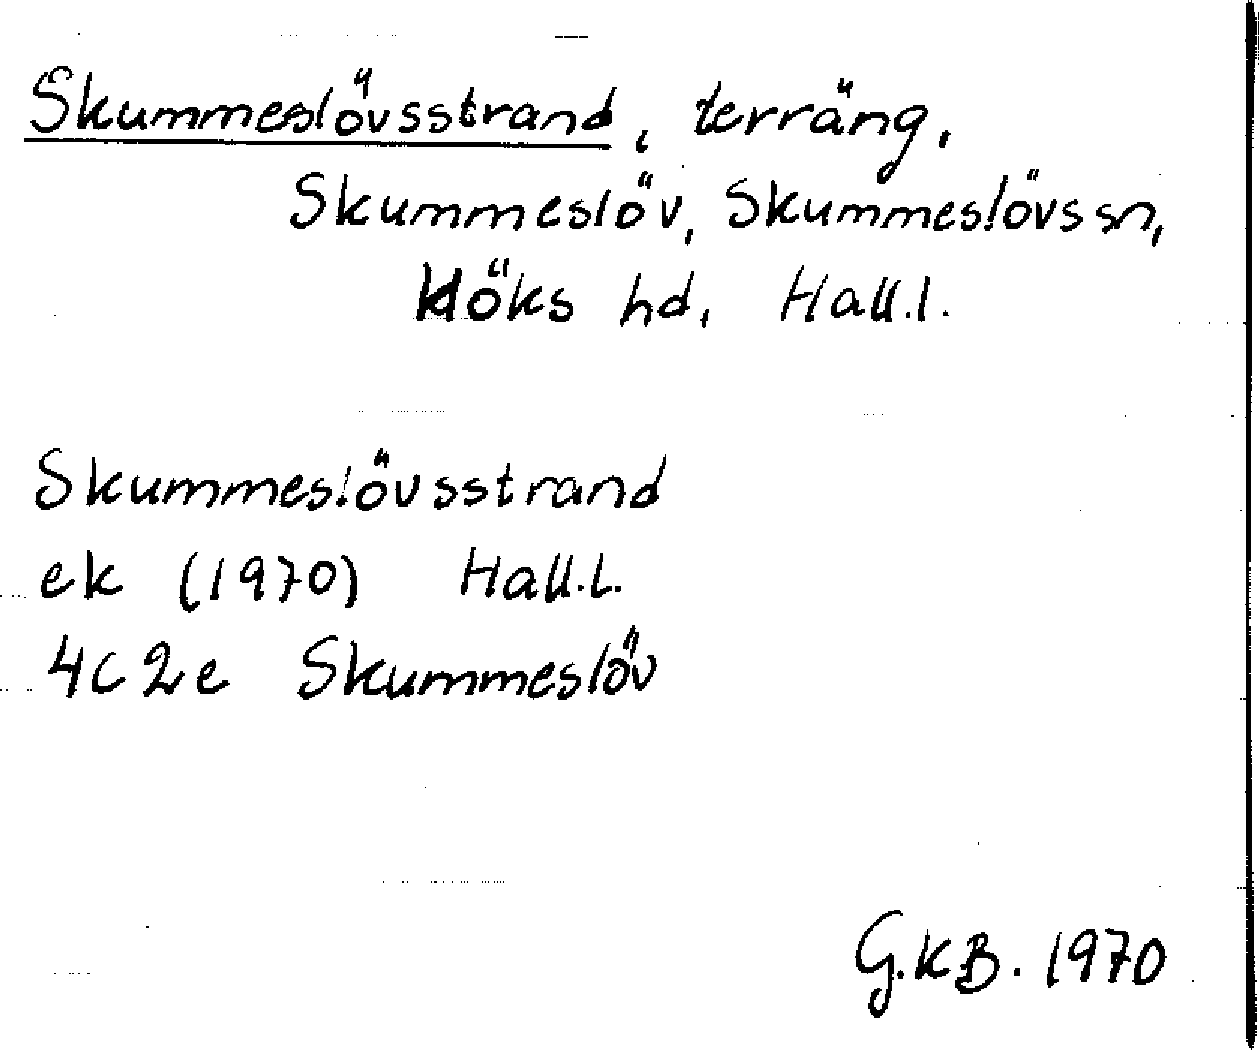 Skummeslövsstrand, terräng,
Skummeslöv, Skummeslövs sn,
Höks hd, Hall.l.
Skummeslövsstrand
ek (1970) Hall.l.
4C2e Skummeslöv
G.K.B. 1970